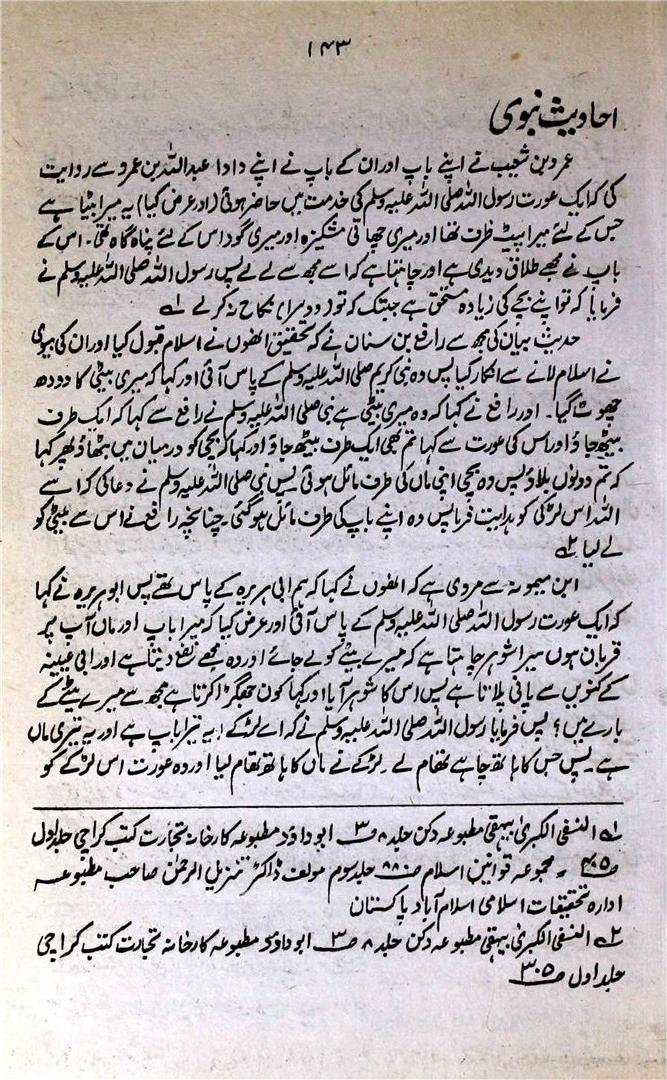 ۱۴۳
احادیث نبوی
عمرو بن شعیب نے اپنے باپ اور ان کے باپ نے اپنے دادا عبداللہ بن عمرو سے روایت
کی کہ ایک عورت رسول اللہ صلی اللہ علیہ وسلم کی خدمت میں حاضر ہوئی (اور عرض کیا) یہ میرا بیٹا ہے
جس کے لئے میرا پیٹ ظرف تھا اور میری چھاتی مشکیزہ اور میری گود اس کے لئے پناہ گاہ تھی۔ اس کے
باپ نے مجھے طلاق دیدی ہے اور چاہتا ہے کہ اسے مجھ سے لے لے پس رسول اللہ صلی اللہ علیہ وسلم نے
فرمایا کہ تو اپنے بچے کی زیادہ مستحق ہے جبتک کہ تو (دوسرا) نکاح نہ کر لے ۱ے
حدیث بیان کی مجھ سے رافع بن سنان نے کہ تحقیق انھوں نے اسلام قبول کیا اور ان کی بیوی
نے اسلام لانے سے انکار کیا پس وہ نبی کریم صلی اللہ علیہ وسلم کے پاس آئی اور کہا کہ میری بیٹی کا دودھ
چھوٹ گیا۔ اور رافع نے کہا کہ وہ میری بیٹی ہے نبی صلی اللہ علیہ وسلم نے رافع سے کہا کہ ایک طرف
بیٹھ جاؤ اور اس کی عورت سے کہا تم بھی ایک طرف بیٹھ جاؤ اور کہا کہ بچی کو درمیان میں بٹھاؤ پھر کہا
کہ تم دونوں بلاؤ پس وہ بچی اپنی ماں کی طرف مائل ہوئی پس نبی صلی اللہ علیہ وسلم نے دعا کی کہ اے
اللہ اس لڑکی کو ہدایت فرما پس وہ اپنے باپ کی طرف مائل ہو گئی۔ چنانچہ رافع نے اس سے بیٹی کو
لے لیا ۲ے
ابن میمونہ سے مروی ہے کہ انھوں نے کہا کہ ہم ابی ہریرہ کے پاس تھے پس ابو ہریرہ نے کہا
کہ ایک عورت رسول اللہ صلی اللہ علیہ وسلم کے پاس آئی اور عرض کیا کہ میرا باپ اور ماں آپ پر
قربان ہوں میرا شوہر چاہتا ہے کہ میرے بیٹے کو لے جائے اور وہ مجھے نفع دیتا ہے اور ابی عیینہ
کے کنویں سے پانی پلاتا ہے پس اس کا شوہر آیا اور کہا کون جھگڑا کرتا ہے مجھ سے میرے بیٹے کے
بارے میں؟ پس فرمایا رسول اللہ صلی اللہ علیہ وسلم نے کہ اے لڑکے! یہ تیرا باپ ہے اور یہ تیری ماں
ہے۔ پس جس کا ہاتھ چاہے تھام لے۔ لڑکے نے ماں کا ہاتھ تھام لیا اور وہ عورت اس لڑکے کو
۱ے النفی الکبریٰ بیہقی مطبوعہ دکن جلد ۸ ص۳ ابوداؤد مطبوعہ کارخانہ تجارت کتب کراچی جلد اول
ص۳۰۵ ۔ مجموعہ قوانین اسلام ص۸۸۰ جلد سوم مولف ڈاکٹر تنزیل الرحمٰن صاحب مطبوعہ
ادارہ تحقیقات اسلامی اسلام آباد پاکستان
۲ے النفی الکبریٰ بیہقی مطبوعہ دکن جلد ۸ ص۳ ابوداؤد مطبوعہ کارخانہ تجارت کتب کراچی
جلد اول ص۳۰۵